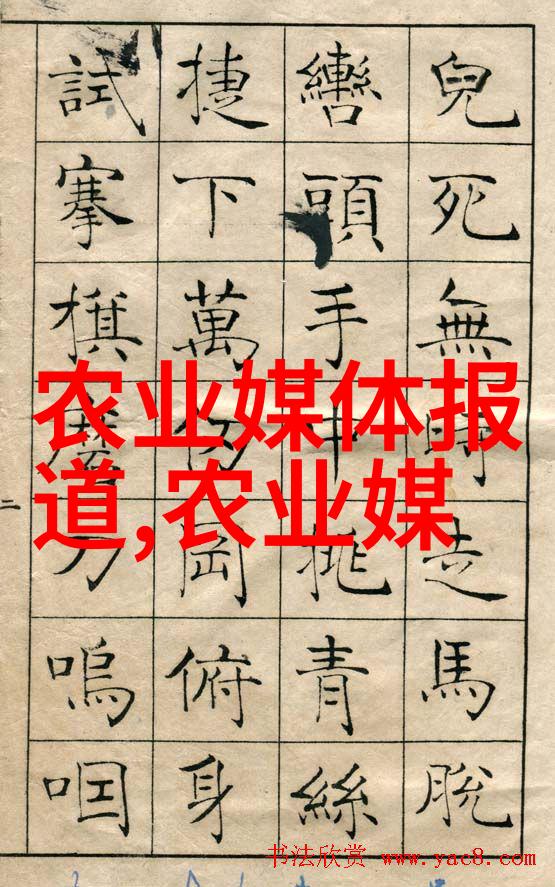 兒死無時走馬脫
轡頭手中挑青絲
捷下萬仞岡俯身
試搴旗磨刀嗚咽
二
农业媒体报
道,农业媒
书法欣赏 www.yac8.com